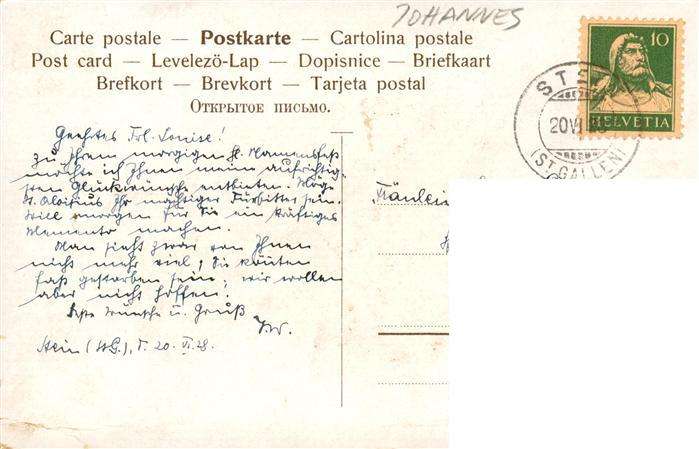 JOHANNES
Carte postale — Postkarte — Cartolina postale
Post card — Levelezö-Lap — Dopisnice — Briefkaart
Brefkort — Brevkort — Tarjeta postal
Открытое письмо.
10
HELVETIA
20 VI
(ST. GALLEN)
Geehrtes Frl. Louise!
Zu Ihrem morgigen hl. Namensfest
möchte ich Ihnen meine aufrichtig-
sten Glückwünsche entbieten. Möge
St. Aloisius Ihr mächtiger Fürbitter sein.
Will morgen für Sie ein kräftiges
Memento machen.
Man sieht zwar von Ihnen
nicht mehr viel; Sie könnten
fast gestorben sein; wir wollen
aber nicht hoffen.
Wünsche u. Gruß
Stein (St. G.), 20. VI. 28.
Fräulein